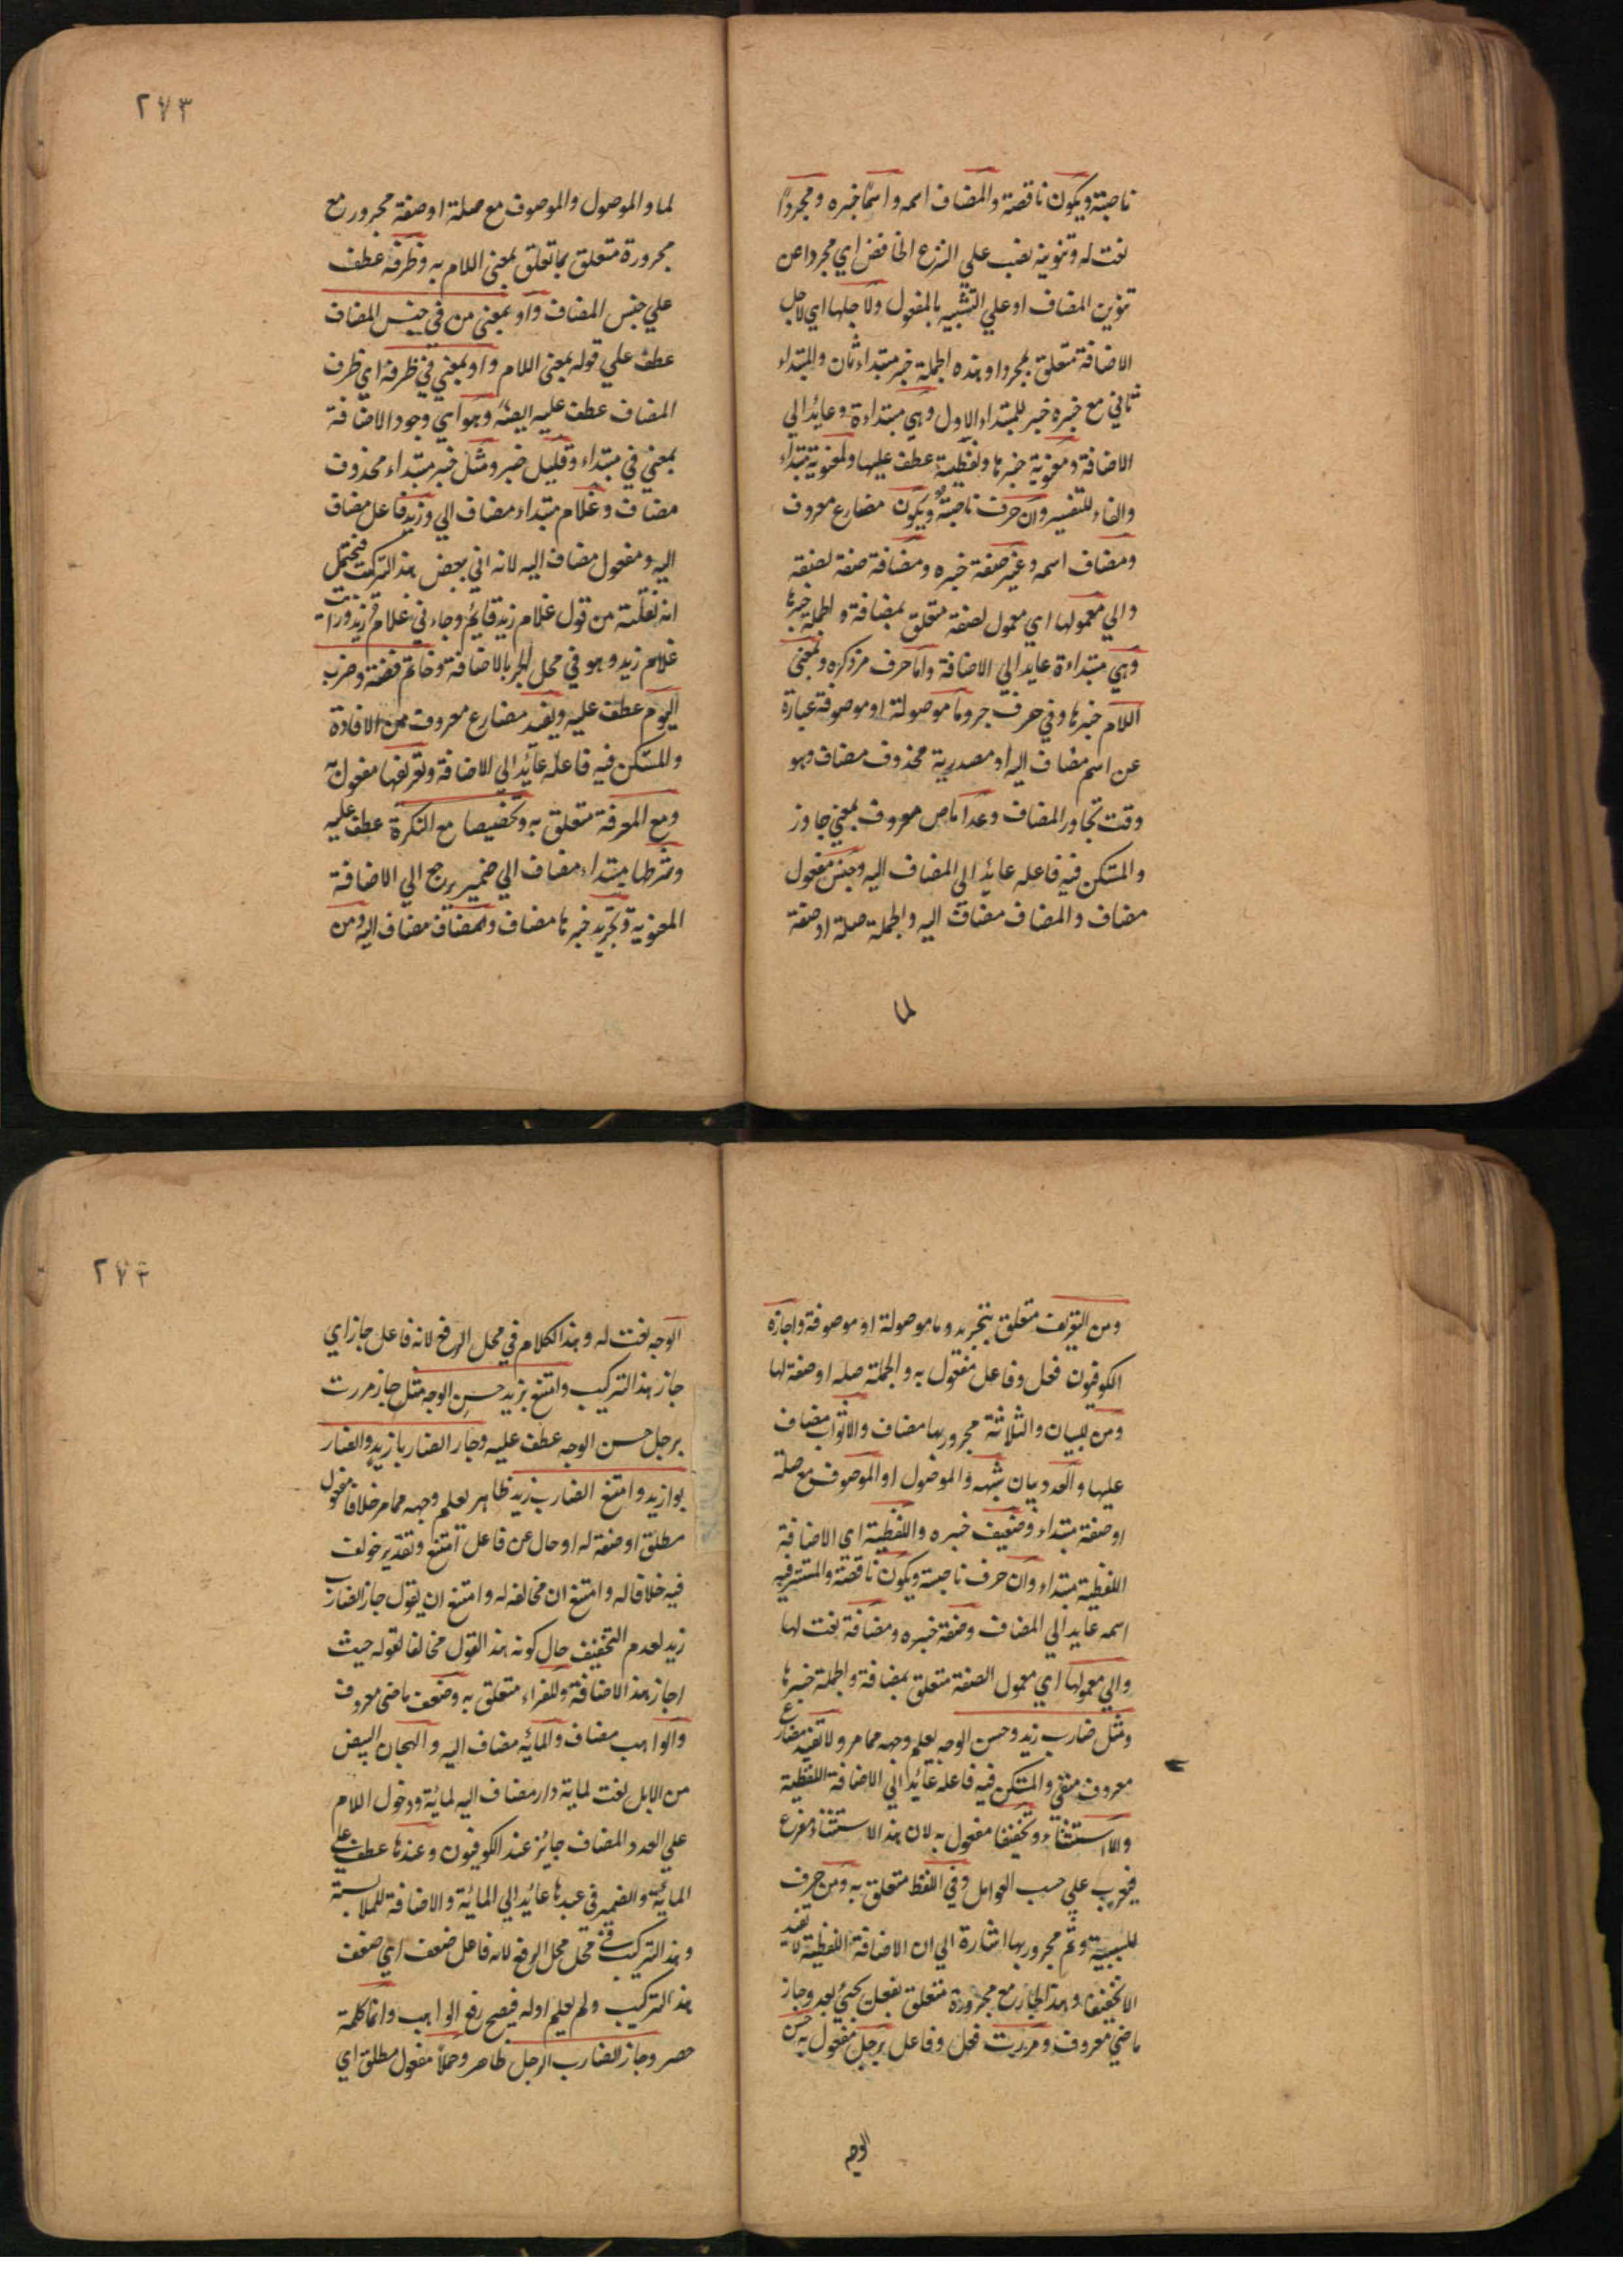 ناصبة ويكون ناقصة والمضاف اسمه واسمًا خبره ومجردًا
نعت له وتنوينه نصب علي النزع الخافض اي مجردا عن
تنوين المضاف او علي التشبيه بالمفعول ولاجلها اي لاجل
الاضافة متعلق بمجردا وهذه الجملة خبر مبتداء ثان والمبتداء
ثاني مع خبره خبر للمبتداء الاول وهي مبتداءة وعايد الي
الاضافة ومعنوية خبرها ولفظية عطف عليها والمعنوية مبتداء
والفاء للتفسير وان حرف ناصبة ويكون مضارع معروف
ومضاف اسمه وغير صفة خبره ومضافة صفة لصفة
والي معمولها اي معمول لصفة متعلق بمضافة والجملة خبرها
وهي مبتداءة عايد الي الاضافة واما حرف مر ذكره وبمعني
اللام خبرها وفي حرف جر وما موصولة او موصوفة عبارة
عن اسم مضاف اليه او مصدرية محذوف مضاف وهو
وقت تجاوز المضاف وعدا ماض معروف بمعني جاوز
والمستكن فيه فاعله عائد الي المضاف اليه وجنس مفعول
مضاف والمضاف مضاف اليه والجملة صلة او صفة
لما
٢٧٣
لما والموصول والموصوف مع صلة او صفة مجرور مع
مجرورة متعلق بما تعلق بمعني اللام به وظرفه عطف
علي جنس المضاف واو بمعني من في جنس المضاف
عطف علي قوله بمعني اللام واو بمعني في ظرفه اي ظرف
المضاف عطف عليه ايضًا وهو اي وجود الاضافة
بمعني في مبتداء وقليل خبر ومثل خبر مبتداء محذوف
مضاف وغلام مبتداء مضاف الي وزيد فاعل مضاف
اليه ومفعول مضاف اليه لانه اتي بعض هذا التركيب فيحتمل
انه نقلته من قول غلام زيد قايم وجاءني غلام زيد ورايت
غلام زيد وهو في محل الجر بالاضافة وخاتم فضة وضرب
اليوم عطف عليه ويفيد مضارع معروف من الافادة
والمستكن فيه فاعله عائد الي الاضافة وتعريفا مفعول به
ومع المعرفة متعلق به وتخصيصا مع النكرة عطف عليه
وشرطها مبتداء مضاف الي ضمير يرجع الي الاضافة
المعنوية وتجريد خبرها مضاف والمضاف مضاف اليه ومن
ومن التعريف متعلق بتجريد وما موصولة او موصوفة واجازه
الكوفيون فعل وفاعل مفعول به والجملة صلة او صفة لها
ومن للبيان والثلاثة مجرور بها مضاف والاثواب مضاف
عليها والعدد بيان شبهه والموصول او الموصوف مع صلة
او صفة مبتداء وضعيف خبره واللفظية اي الاضافة
اللفظية مبتداء وان حرف ناصبة ويكون ناقصة والمستتر فيه
اسمه عايد الي المضاف وصفة خبره ومضافة نعت لها
والي معمولها اي معمول الصفة متعلق بمضافة والجملة خبرها
ومثل ضارب زيد وحسن الوجه يعلم وجهه مما مر ولا تفيد مضارع
معروف منفي والمستكن فيه فاعله عائد الي الاضافة اللفظية
والا استثناء وتخفيفا مفعول به لان هذا الاستثناء مفرغ
فيعرب علي حسب العوامل وفي اللفظ متعلق به ومن حرف
للسببية وثم مجرور بها اشارة الي ان الاضافة اللفظية لا تفيد
الا تخفيفا وهذا الجار مع مجروره متعلق بفعل يجيء بعد وجاز
ماضي معروف ومررت فعل وفاعل برجل مفعول به حسن
الوجه
٢٧٤
الوجه نعت له وهذا الكلام في محل الرفع لانه فاعل جاز اي
جاز هذا التركيب وامتنع بزيد حسن الوجه مثل جاز مررت
برجل حسن الوجه عطف عليه وجاز الضاربا زيد والضار
بوا زيد وامتنع الضارب زيد ظاهر يعلم وجهه مما مر خلافا مفعول
مطلق او صفة له او حال عن فاعل امتنع وتقدير خولف
فيه خلافا له وامتنع ان مخالفه له وامتنع ان يقول جاز الضارب
زيد لعدم التخفيف حال كونه هذا القول مخالفا لقوله حيث
اجاز هذا الاضافة وللفراء متعلق به وضعف ماضي معروف
والواهب مضاف والمائة مضاف اليه والهجان البيض
من الابل نعت لماية دار مضاف اليه لمائة ودخول اللام
علي العدد المضاف جائز عند الكوفيون وعبدها عطف علي
الماية والضمير في عبدها عائد الي المائة والاضافة للملابسة
وهذا التركيب في محل الرفع لانه فاعل ضعف اي ضعف
هذا التركيب ولم يعلم اوله فيصح رفع الواهب وانما كلمة
حصر وجاز الضارب الرجل ظاهر وحملا مفعول مطلق اي